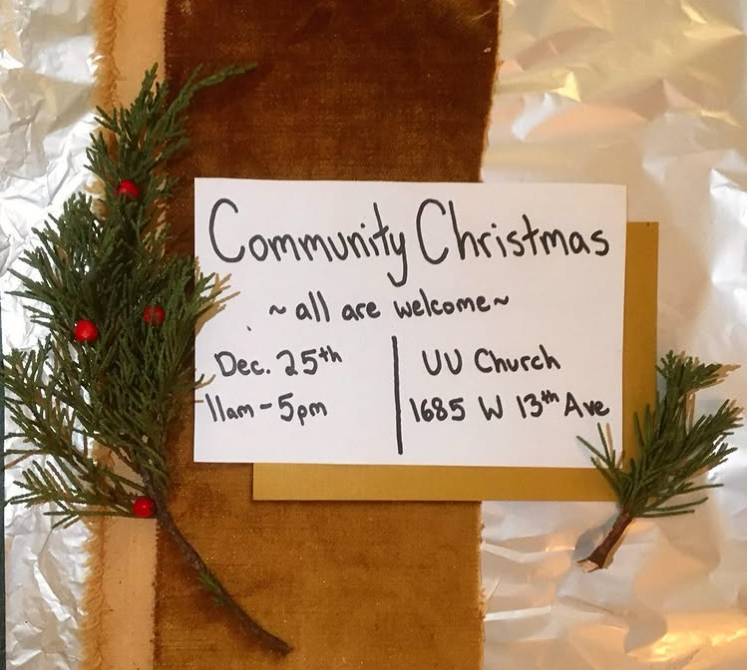 Community Christmas
~all are welcome~
Dec. 25th
11am-5pm
UU Church
1685 W 13th Ave